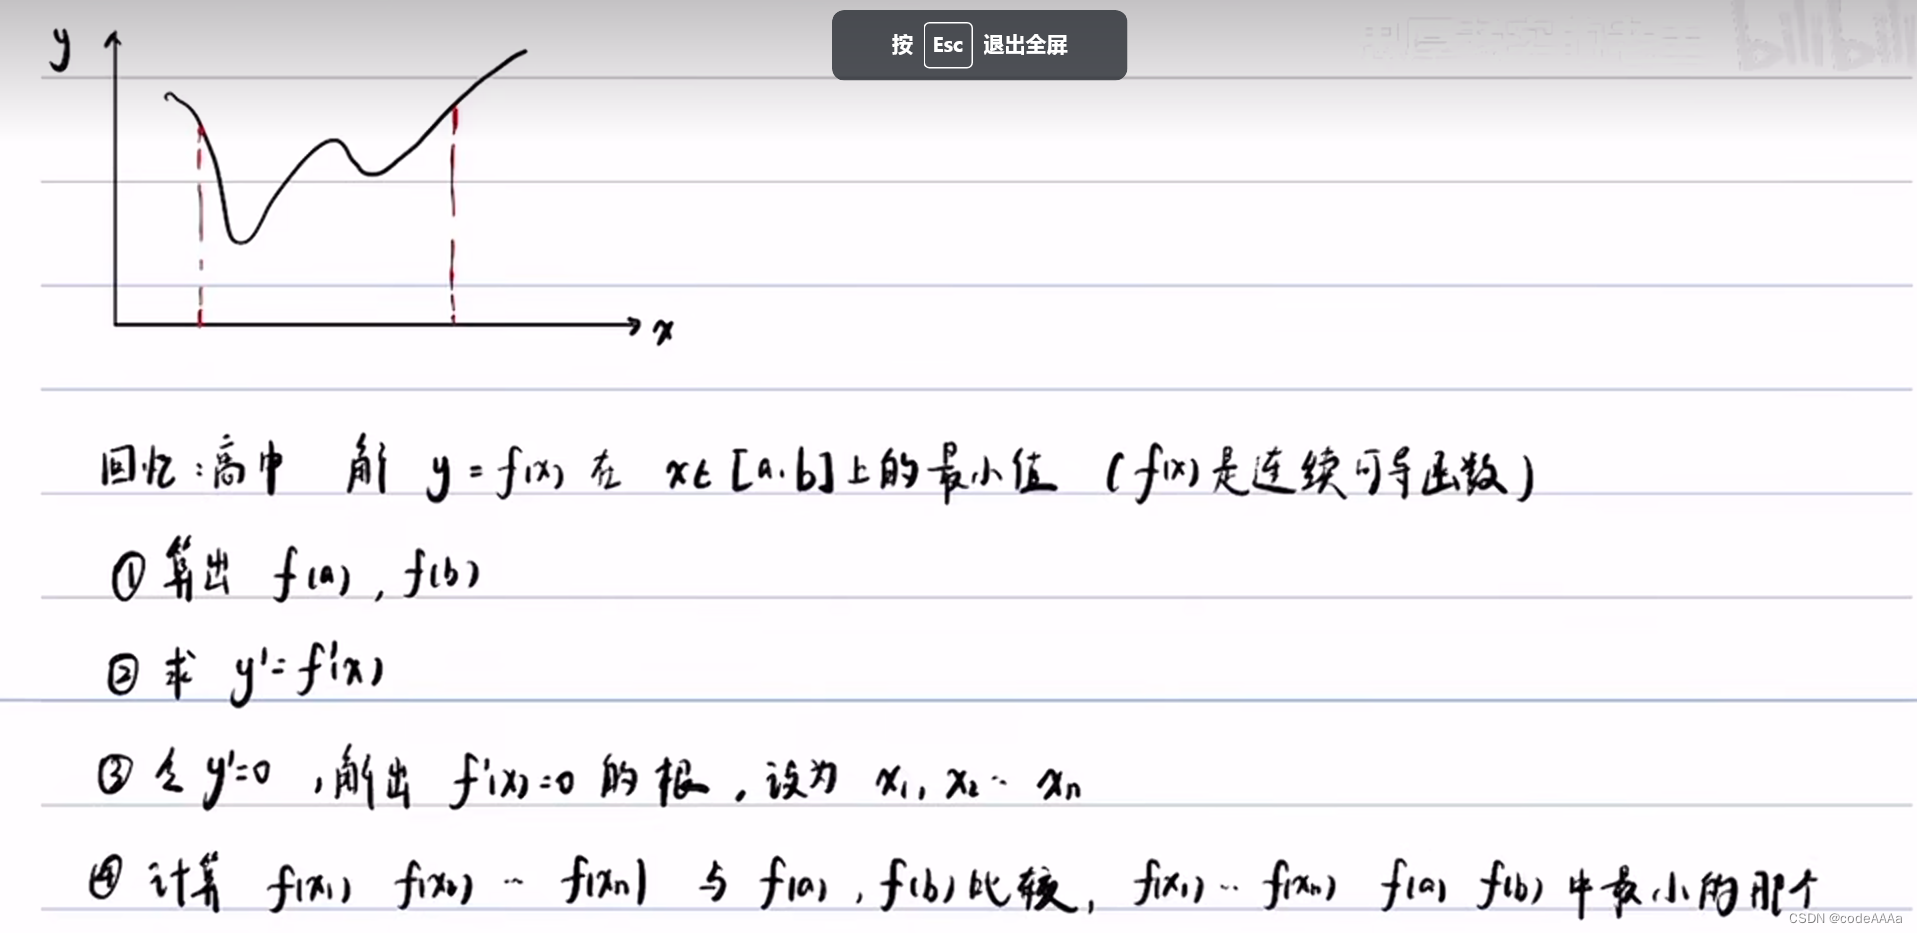 按 Esc 退出全屏
bilibili
y
x
回忆:高中 解 y=f(x) 在 x∈[a.b]上的最小值 (f(x)是连续可导函数)
① 算出 f(a), f(b)
② 求 y'=f'(x)
③ 令 y'=0 ,解出 f'(x)=0 的根,设为 x₁, x₂ ·· xₙ
④ 计算 f(x₁) f(x₂) ·· f(xₙ) 与 f(a), f(b)比较, f(x₁)·· f(xₙ) f(a) f(b) 中最小的那个
CSDN @codeAAAa